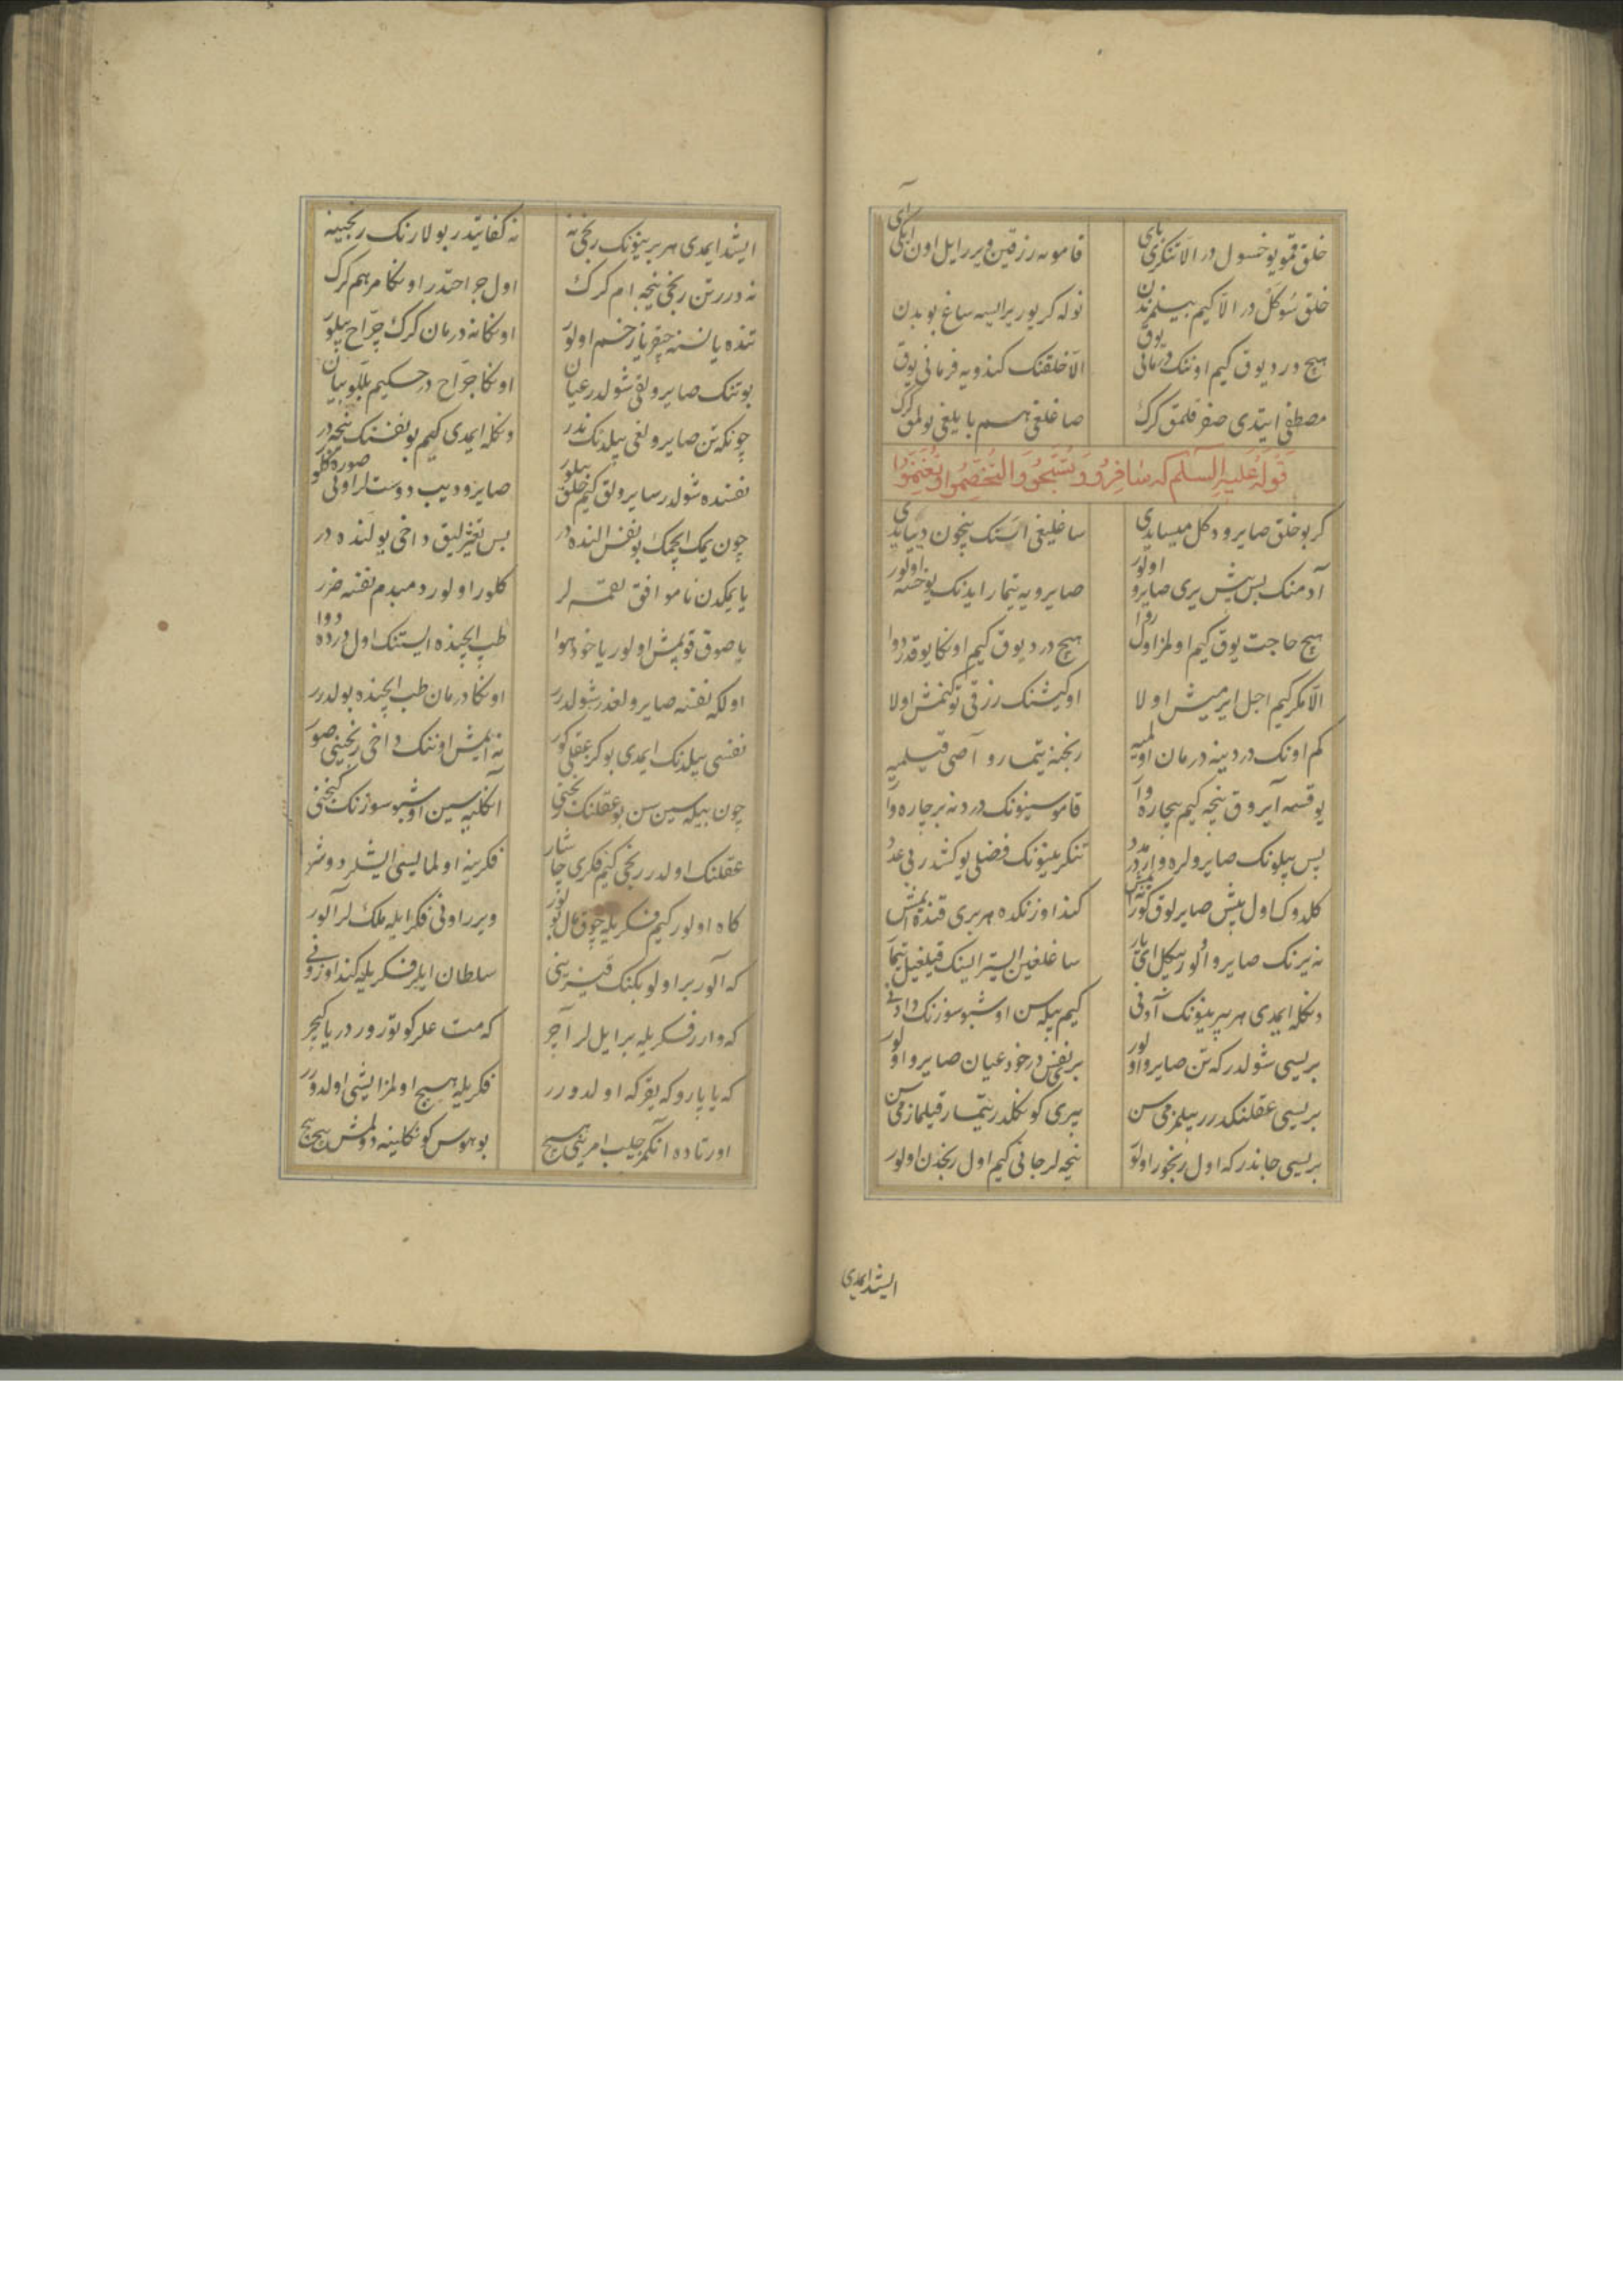 خلق قمو یوخسول در الا تنکری بای
قامونه رزقین ویرر ایل اون ایکی آی
خلق سوکل در الا کیم بیلمز ندن
نوله کر یوریرایسه ساغ بو بدن
هیچ درد یوق کیم اوننک درمانی یوق
الا خلقنک کندویه فرمانی یوق
مصطفی ایتدی صفر قلمق کرک
صاغلغی هم بایلغی بولمق کرک
قوله علیه السلم که سافروا وتسبحوا والتختصموا وتغنموا
کر بو خلق صایرو دکل میسایدی
ساغلیغی استنک نیچون دییایدی
آدمنک بس بیش یری صایرو اولور
صایرویه تیمار ایدنک یوخسه اولور
هیچ حاجت یوق کیم اولمز اول روا
هیچ درد یوق کیم اونکا یوقدر دوا
الا مکر کیم اجل ایرمیش اولا
او کیشنک رزقی توکنمش اولا
کم اونک دردینه درمان اولمیه
رنجنه تیمارو آصی قیلمیه
یوقسه آیروق نیجه کیم بیچاره وار
قاموسینونک دردنه بر چاره وار
بس بیلونک صایرولره واردر مدد
تنکرینونک فضلی یوکشدر بی عدد
کلدوک اول بیش صایرلوق
کند اوزنکده هر بری قنده ایمش
نه یرنک صایرو الور بیکل ای یار
ساغلغین استر ایسنک قیلغیل تیمار
دنکله ایمدی هر بیرینونک آدنی
کیم بیله سن اوشبو سوزنک دادنی
بریسی شولدر که تن صایرو اولور
بر نفس در خود عیان صایرو اولور
بریسی عقلنکدرر بیلمز می سن
بیری کونکلدر تیمار قیلماز می سن
بریسی جاندر که اول رنجور اولور
نیجه لر جانی کیم اول رنجدن اولور
ایشد ایمدی
ایشد ایمدی هر برینونک رنجی نه
نه کفایتدر بولارنک رنجینه
نه درر تن رنجی نیجه ام کرک
اول جراحتدر اونکا مرهم کرک
تنده یا نسنه چقر یا زخم اولور
اونکا نه درمان کرک جراح بیلور
بو تنک صایرولقی شولدر عیان
اونکا جراح در حکیم بللو بیان
چونکه تن صایرولغی بیلدنک ندر
دنکله ایمدی کیم بو نفسنک نیجه در
نفسنده شولدر سایرولق کیم خلق بیلور
صایرو دیب دوستلر اونی صوره کلور
چون یمک ایچمک بو نفس النده در
بس تغیرلیق داخی یولنده در
یا یمکدن ناموافق لقمه لر
کلور اولور دمبدم نفسه ضرر
یا صوق قوپمش اولور یا خود هوا
طب ایچنده ایستنک اول درده دوا
اولکه نفسنه صایرولغدر شولدرر
اونکا درمان طب ایچنده بولدرر
نفسی بیلدنک ایمدی بو کز عقلی کور
نه ایمش اوننک داخی رنجینی صور
چون بیله سین سن بو عقلنک رنجنی
آنکلیه سین اوشبو سوزنک کنجنی
عقلنک اولدر رنجی کیم فکری چاشار
فکرینه اولمایسی ایشلر دوشر
کاه اولور کیم فکریله چوق مال بولور
ویرر اونی فکر ایله ملک لر آلور
که آلور بر اولو بکنک قیزینی
سلطان ایلر فکریله کند اوزونی
که وارر فکریله بر ایل لر آچر
که متاعلر کوتورور دریا کچر
که یاپارو که یقر که اولدورر
فکریله هیچ اولمز ایشی اولدورر
اورتاده آنکمز جلب امرینی هیچ
بو هوس کونکلینه دولمش پیچ پیچ